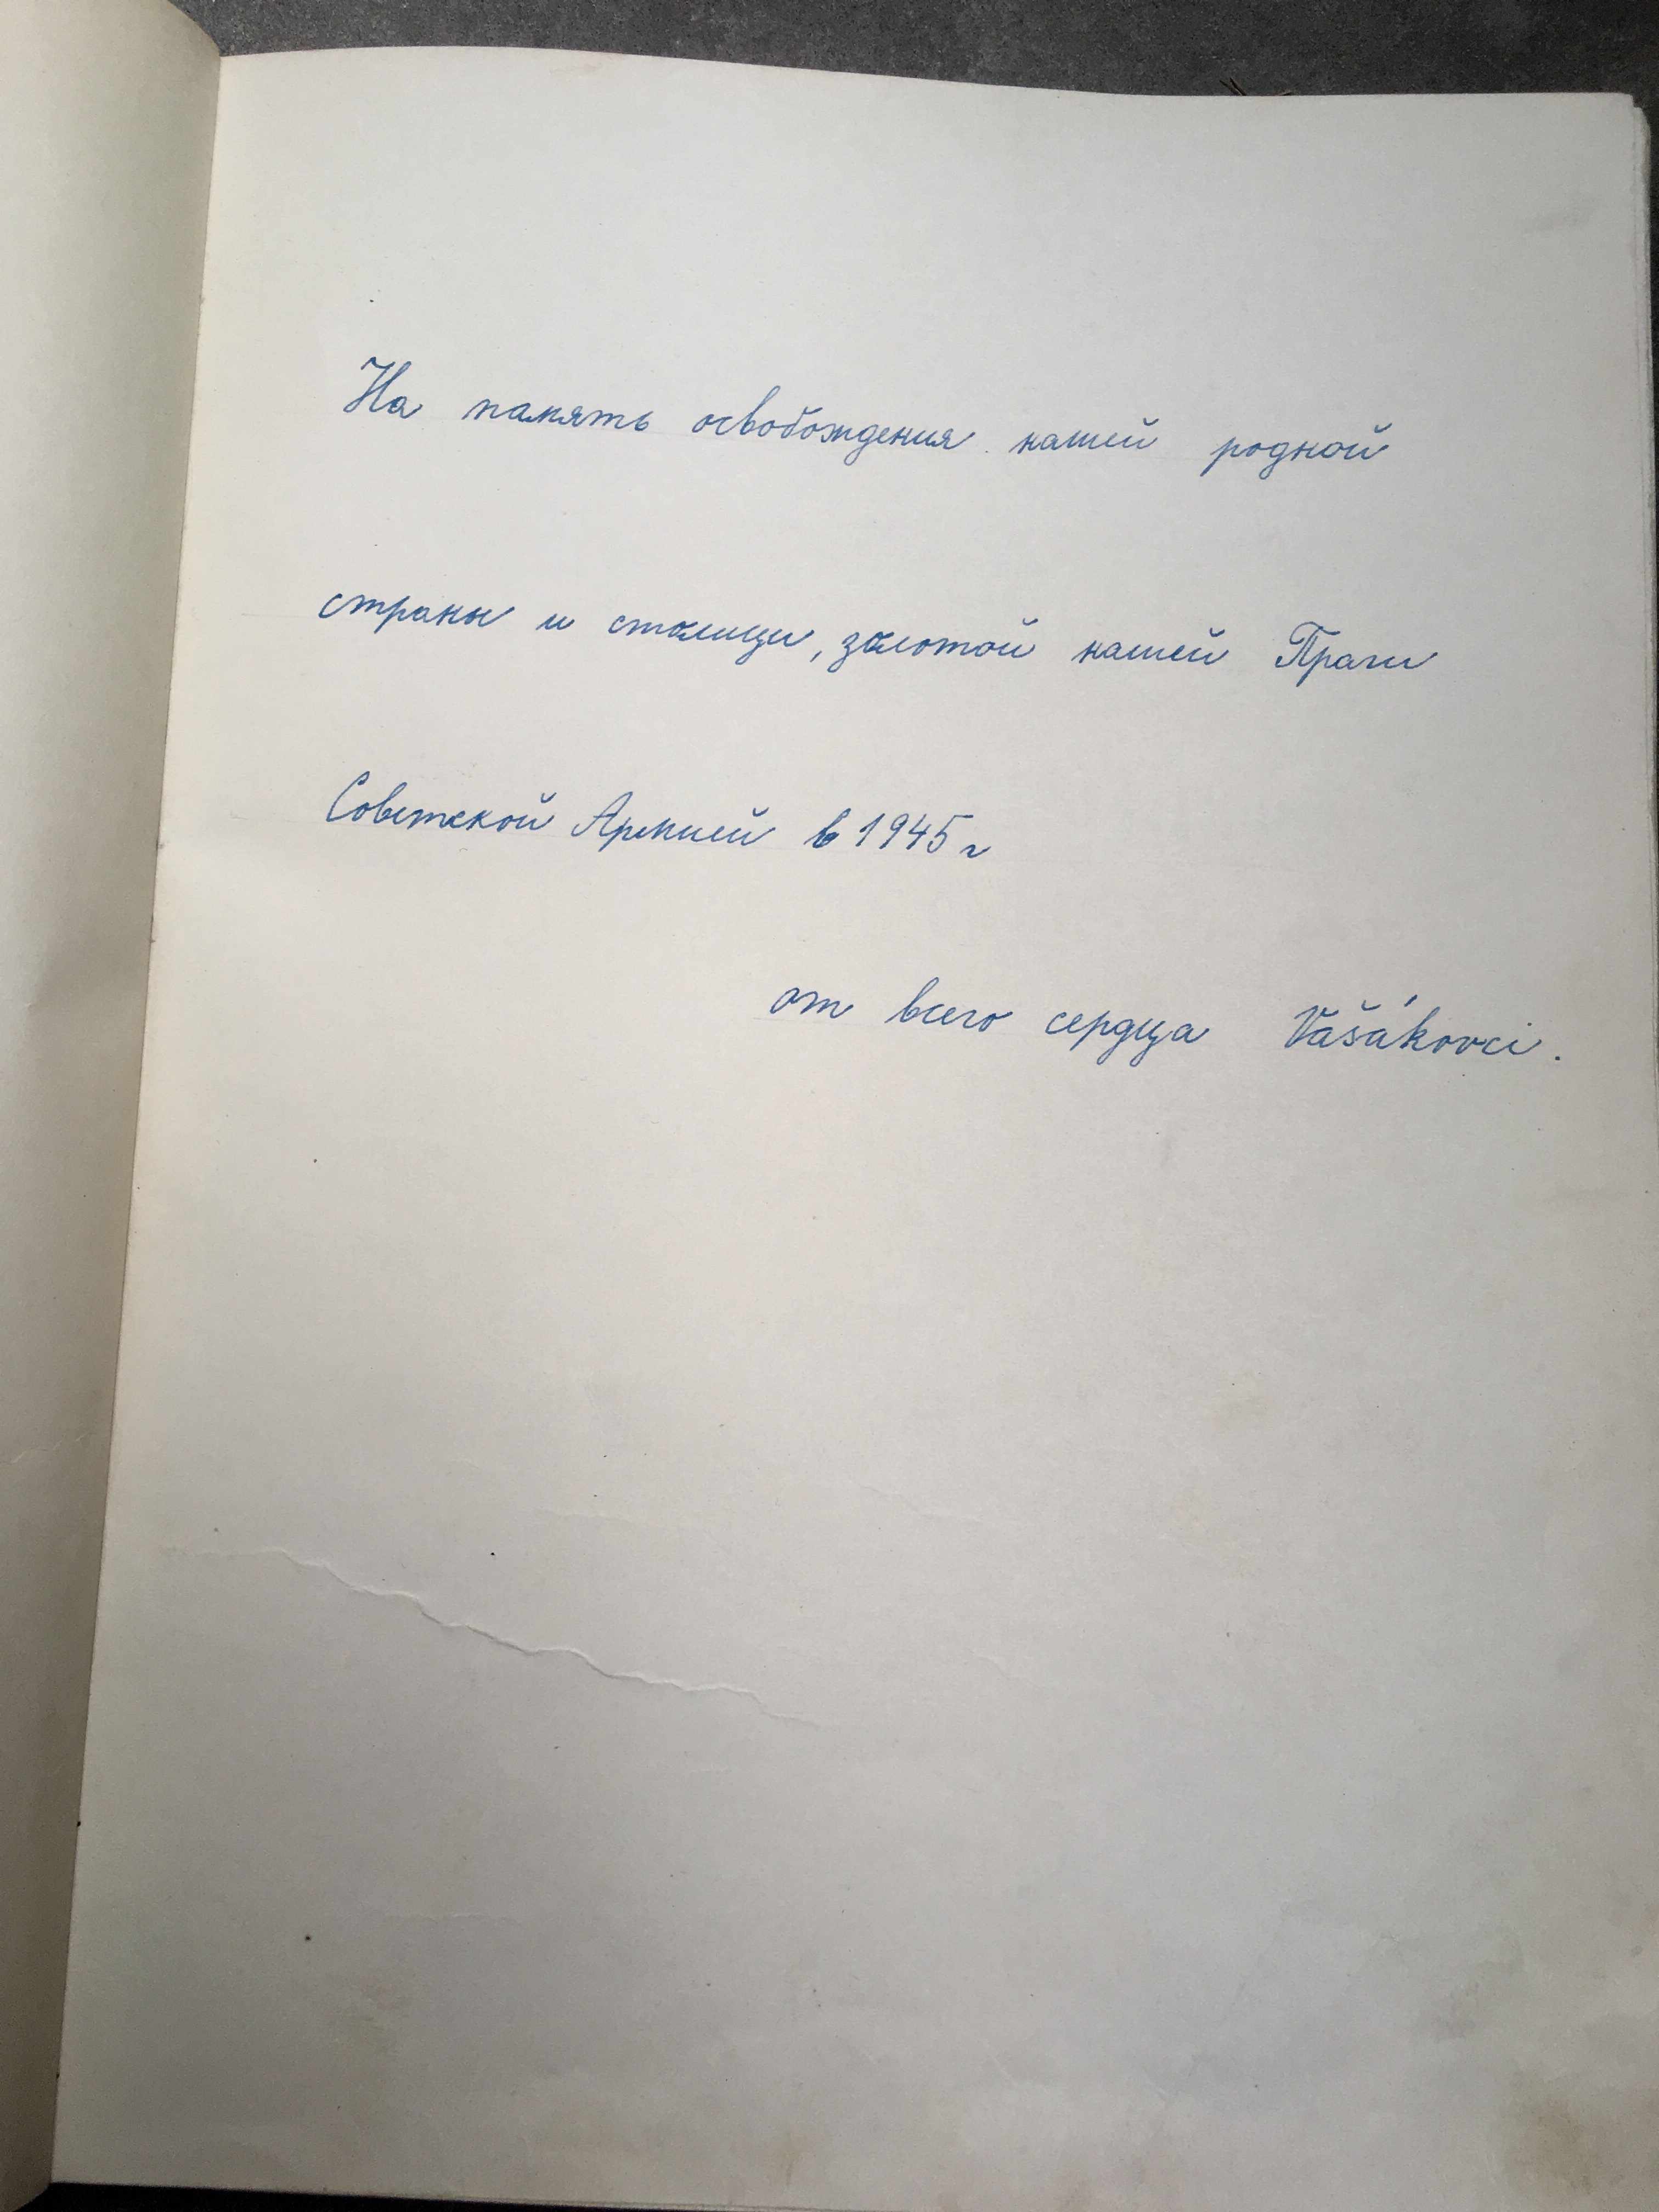 На память освобождения нашей родной
страны и столицы, золотой нашей Праги
Советской Армией в 1945 г
от всего сердца Vašákovci.